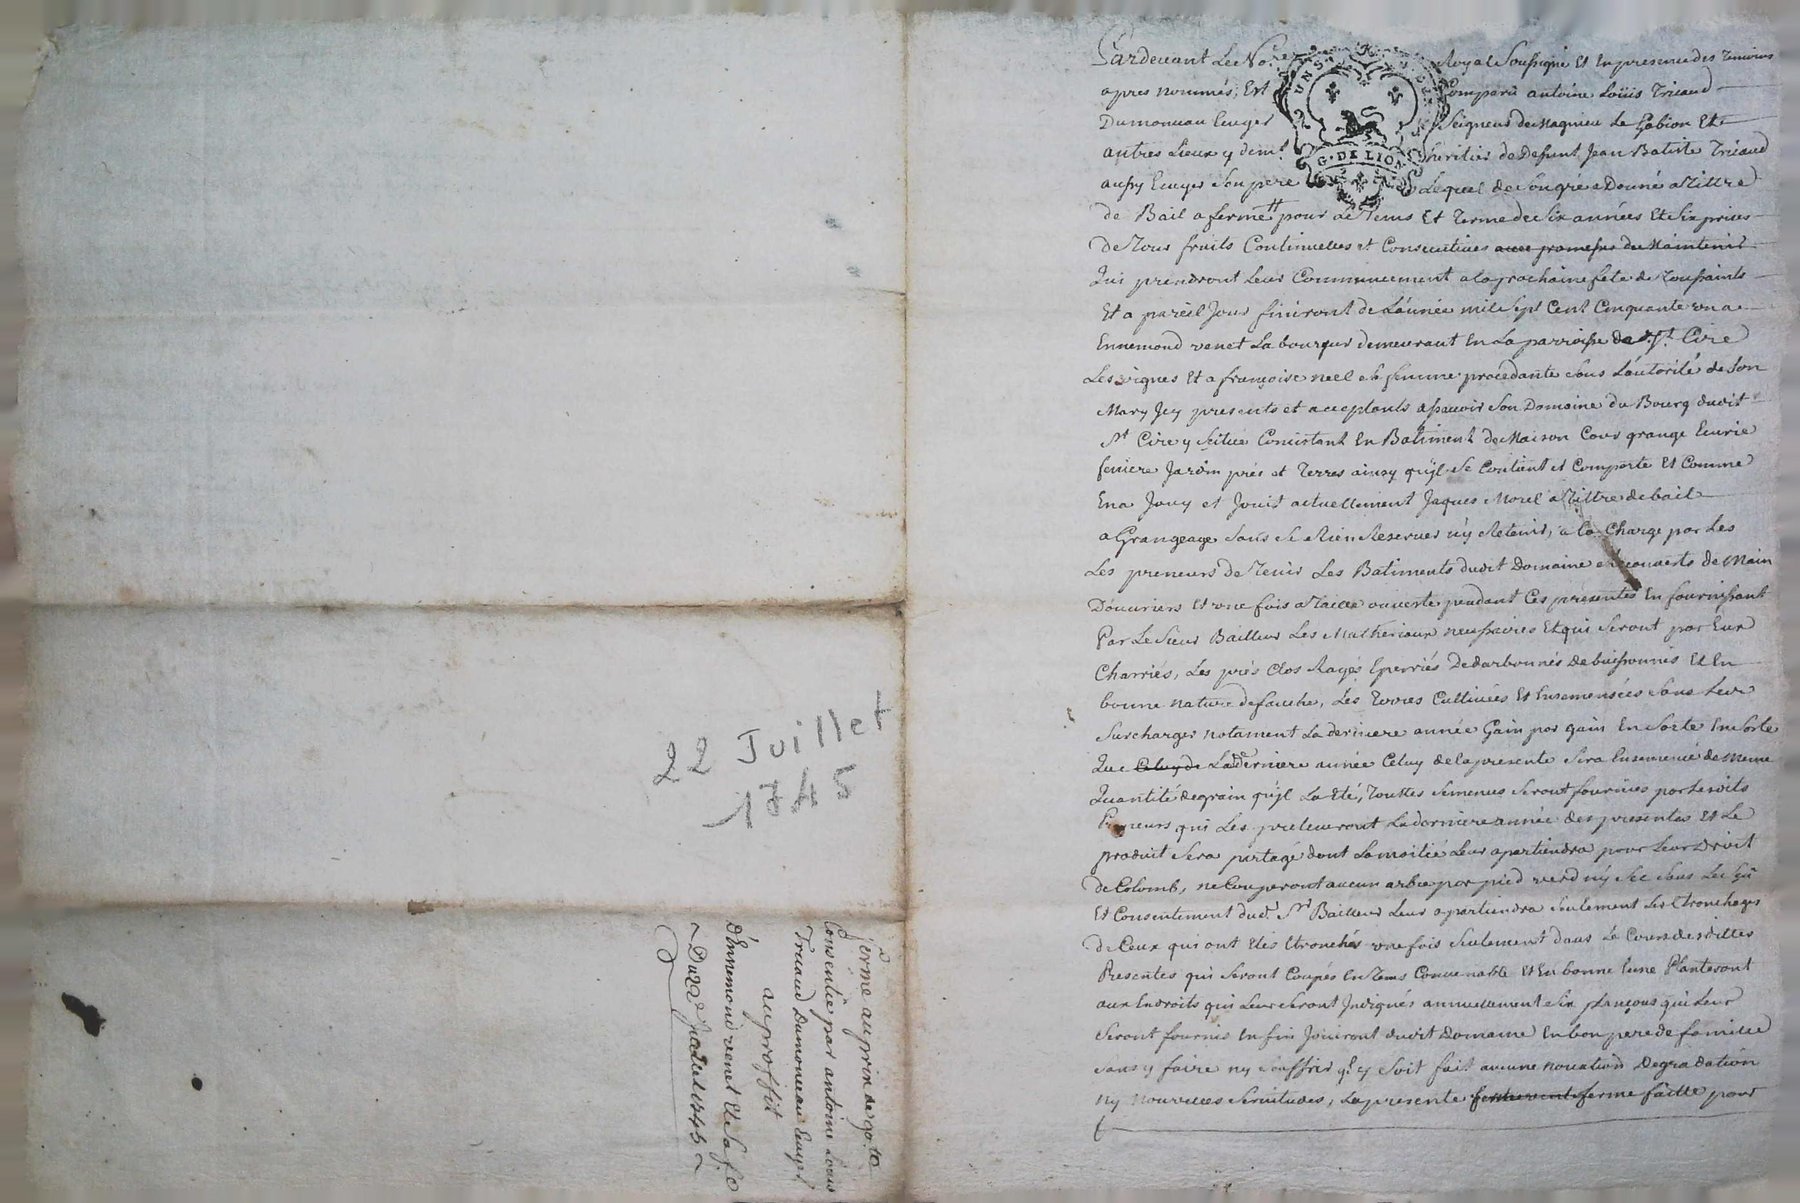 22 Juillet
1745
ferme au prix de 90 ₶
Consentie par antoine Louis
Tricaud Dumonceau Ecuyer
au proffit
D'Ennemond venet et sa fe
Du 22 Juillet 1745
Pardevant Le No.re Royal Soussigné Et En presence des Temoins
apres nommés, Est Comparu antoine Loüis Tricaud
Dumonceau Ecuyer Seigneur de Magnieu Le Gabion Et
autres Lieux y demt. heritier de Defunt Jean Batiste Tricaud
aussy Ecuyer Son pere Lequel de Son gré a Donné a Tittre
de Bail a ferme pour Le Tems Et Terme de Six années Et Six prises
de Tous fruits Continuelles et Consecutives avec promesses de Maintenir
Qui prendront Leur Commencement a la prochaine fete de Toussaints
Et a pareil Jour finiront de L'année mil Sept Cent Cinquante un a
Ennemond venet Laboureur demeurant En La parroisse de St. Cire
Les vignes Et a françoise neel Sa femme procedante Sous L'autorité de Son
Mary Icy presents et acceptants asscavoir Son Domaine du Bourg dudit
St Cire y Scitué Consistant En Batiment de Maison Cour grange Ecurie
feniere Jardin prés et Terres ainsy qu'jl Se Contient et Comporte Et Comme
En a Jouy et Jouit actuellement Jaques Morel a Tittre de bail
a Grangeage Sans Se Rien Reserver n'y Retenir, a la Charge par Les
Les preneurs de Tenir Les Batiments dudit Domaine de Main
D'ouvriers Et une fois a Taille ouverte pendant Ces presentes En fournissant
Par Le Sieur Bailleur Les Matheriaux necessaires Et qui Seront par Eux
Charriés, Les prés Clos Rayés Eperriés Dedarbonnés Debuissonnés Et En
bonne nature de fauche, Les Terres Cultivées Et Ensemensées Sans Les
Surcharger notament La derniere année Gain par gain En Sorte En Sorte
Que Celuy de La derniere année Celuy de la presente Sera Ensemencé de Meme
Quantité de grain qu'jl La Eté, Touttes Semences Seront fournies par Lesdits
preneurs qui Les preleveront La derniere année des presentes Et Le
produit Sera partagé dont La moitié Leur apartiendra pour Leur Droit
de Colomb, ne Couperont aucun arbre par pied verd ny Sec Sans Le Sçû
Et Consentement dud. Sr Bailleur Leur apartiendra Seulement Les Etronchages
de Ceux qui ont Etés Etronchés une fois Seulement dans Le Cours desdittes
Presentes qui Seront Coupés En Tems Convenable Et En bonne Lune Planteront
aux Endroits qui Leur Seront Indiqués annuellement Six plançons qui Leur
Seront fournis En fin Jouiront dudit Domaine En bon pere de famille
Sans y faire ny Souffrir qu'il y Soit fait aucune novation Degradation
ny nouvelles Servitudes, La presente ferme faitte pour
G. DE LION